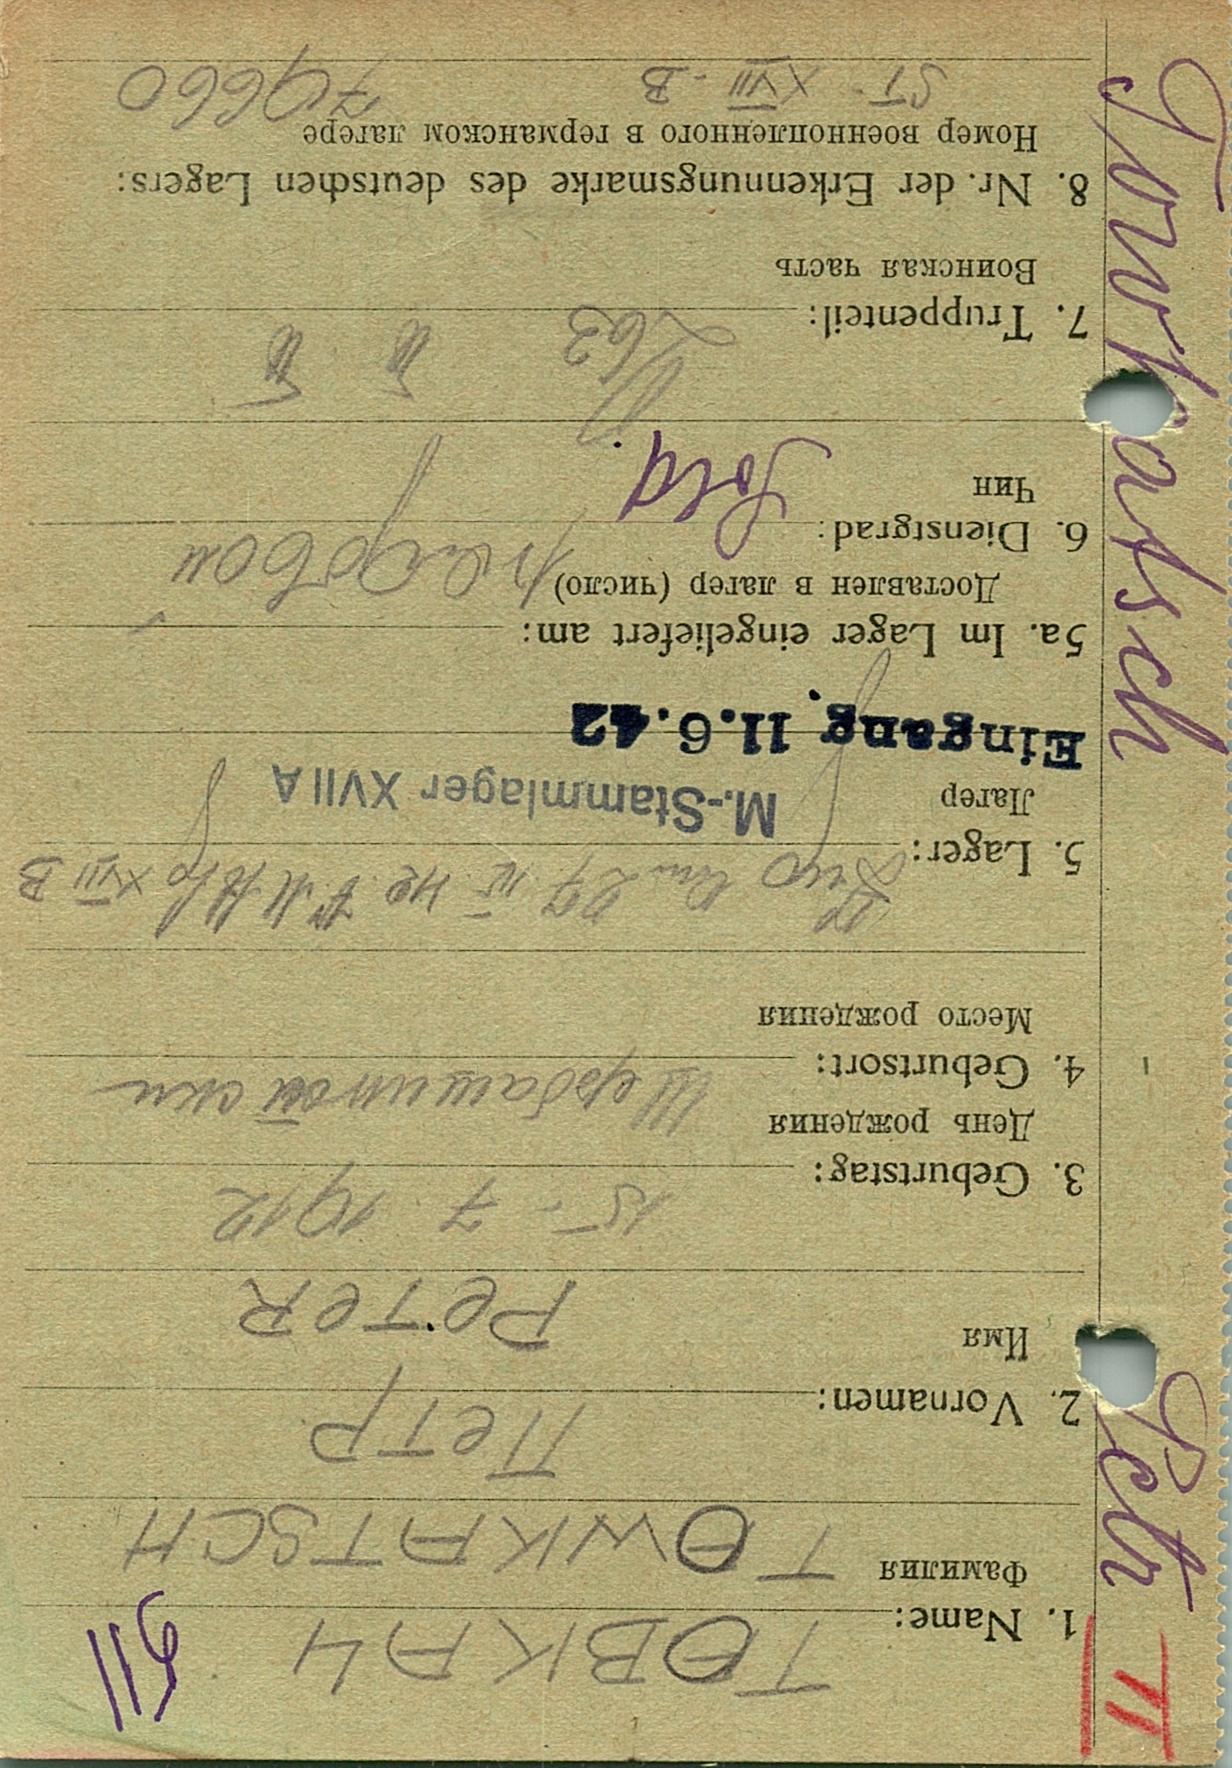 911
1. Name: ТОВКАЧ
Фамилия TOWKATSCH
2. Vornamen: Петр
Имя PeTeR
3. Geburtstag: 15. 7. 1912
День рождения
4. Geburtsort:
Место рождения
XVII B
5. Lager:
Лагерь M.-Stammlager XVII A
Eingang 11.6.42
5a. Im Lager eingeliefert am:
Доставлен в лагер (число) рядовой
6. Dienstgrad: Sold.
Чин
7. Truppenteil: 263
Воинская часть
8. Nr. der Erkennungsmarke des deutschen Lagers:
Номер военнопленного в германском лагере
ST. XVII-B 79660
Π Petr Towkatsch